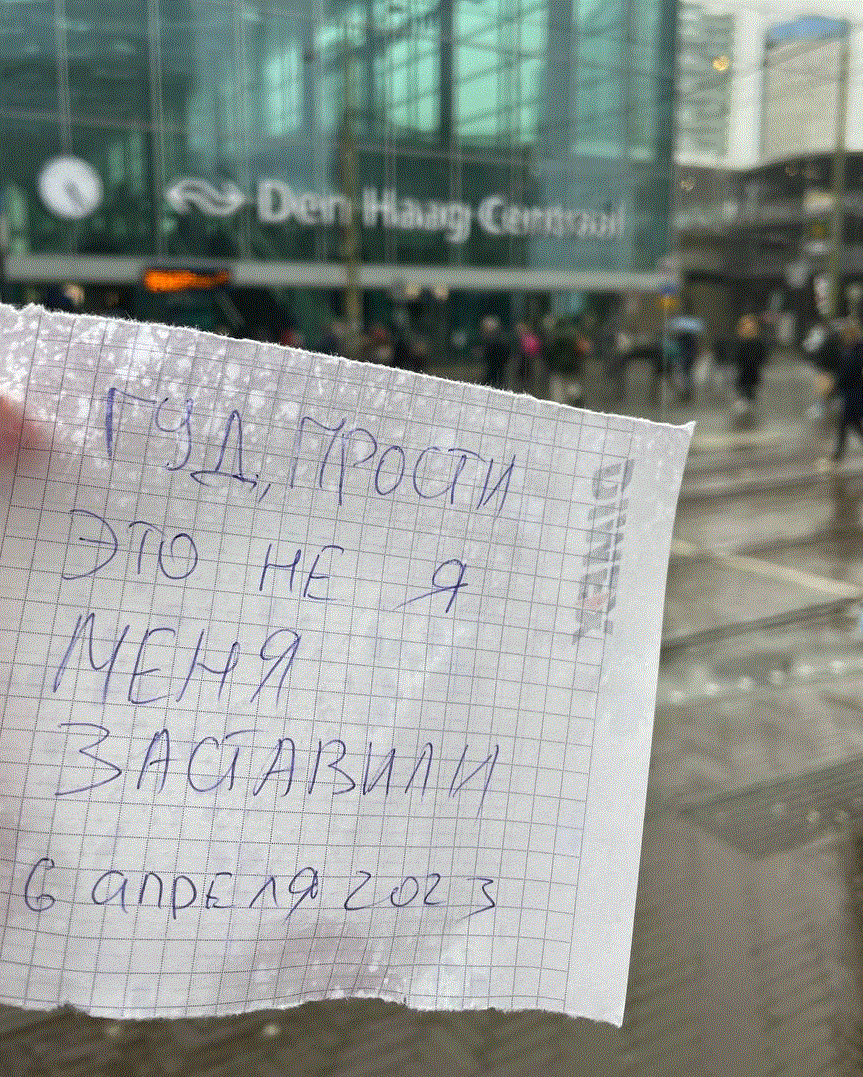 Den Haag Centraal
ГУД, ПРОСТИ
ЭТО НЕ Я
МЕНЯ
ЗАСТАВИЛИ
6 апреля 2023